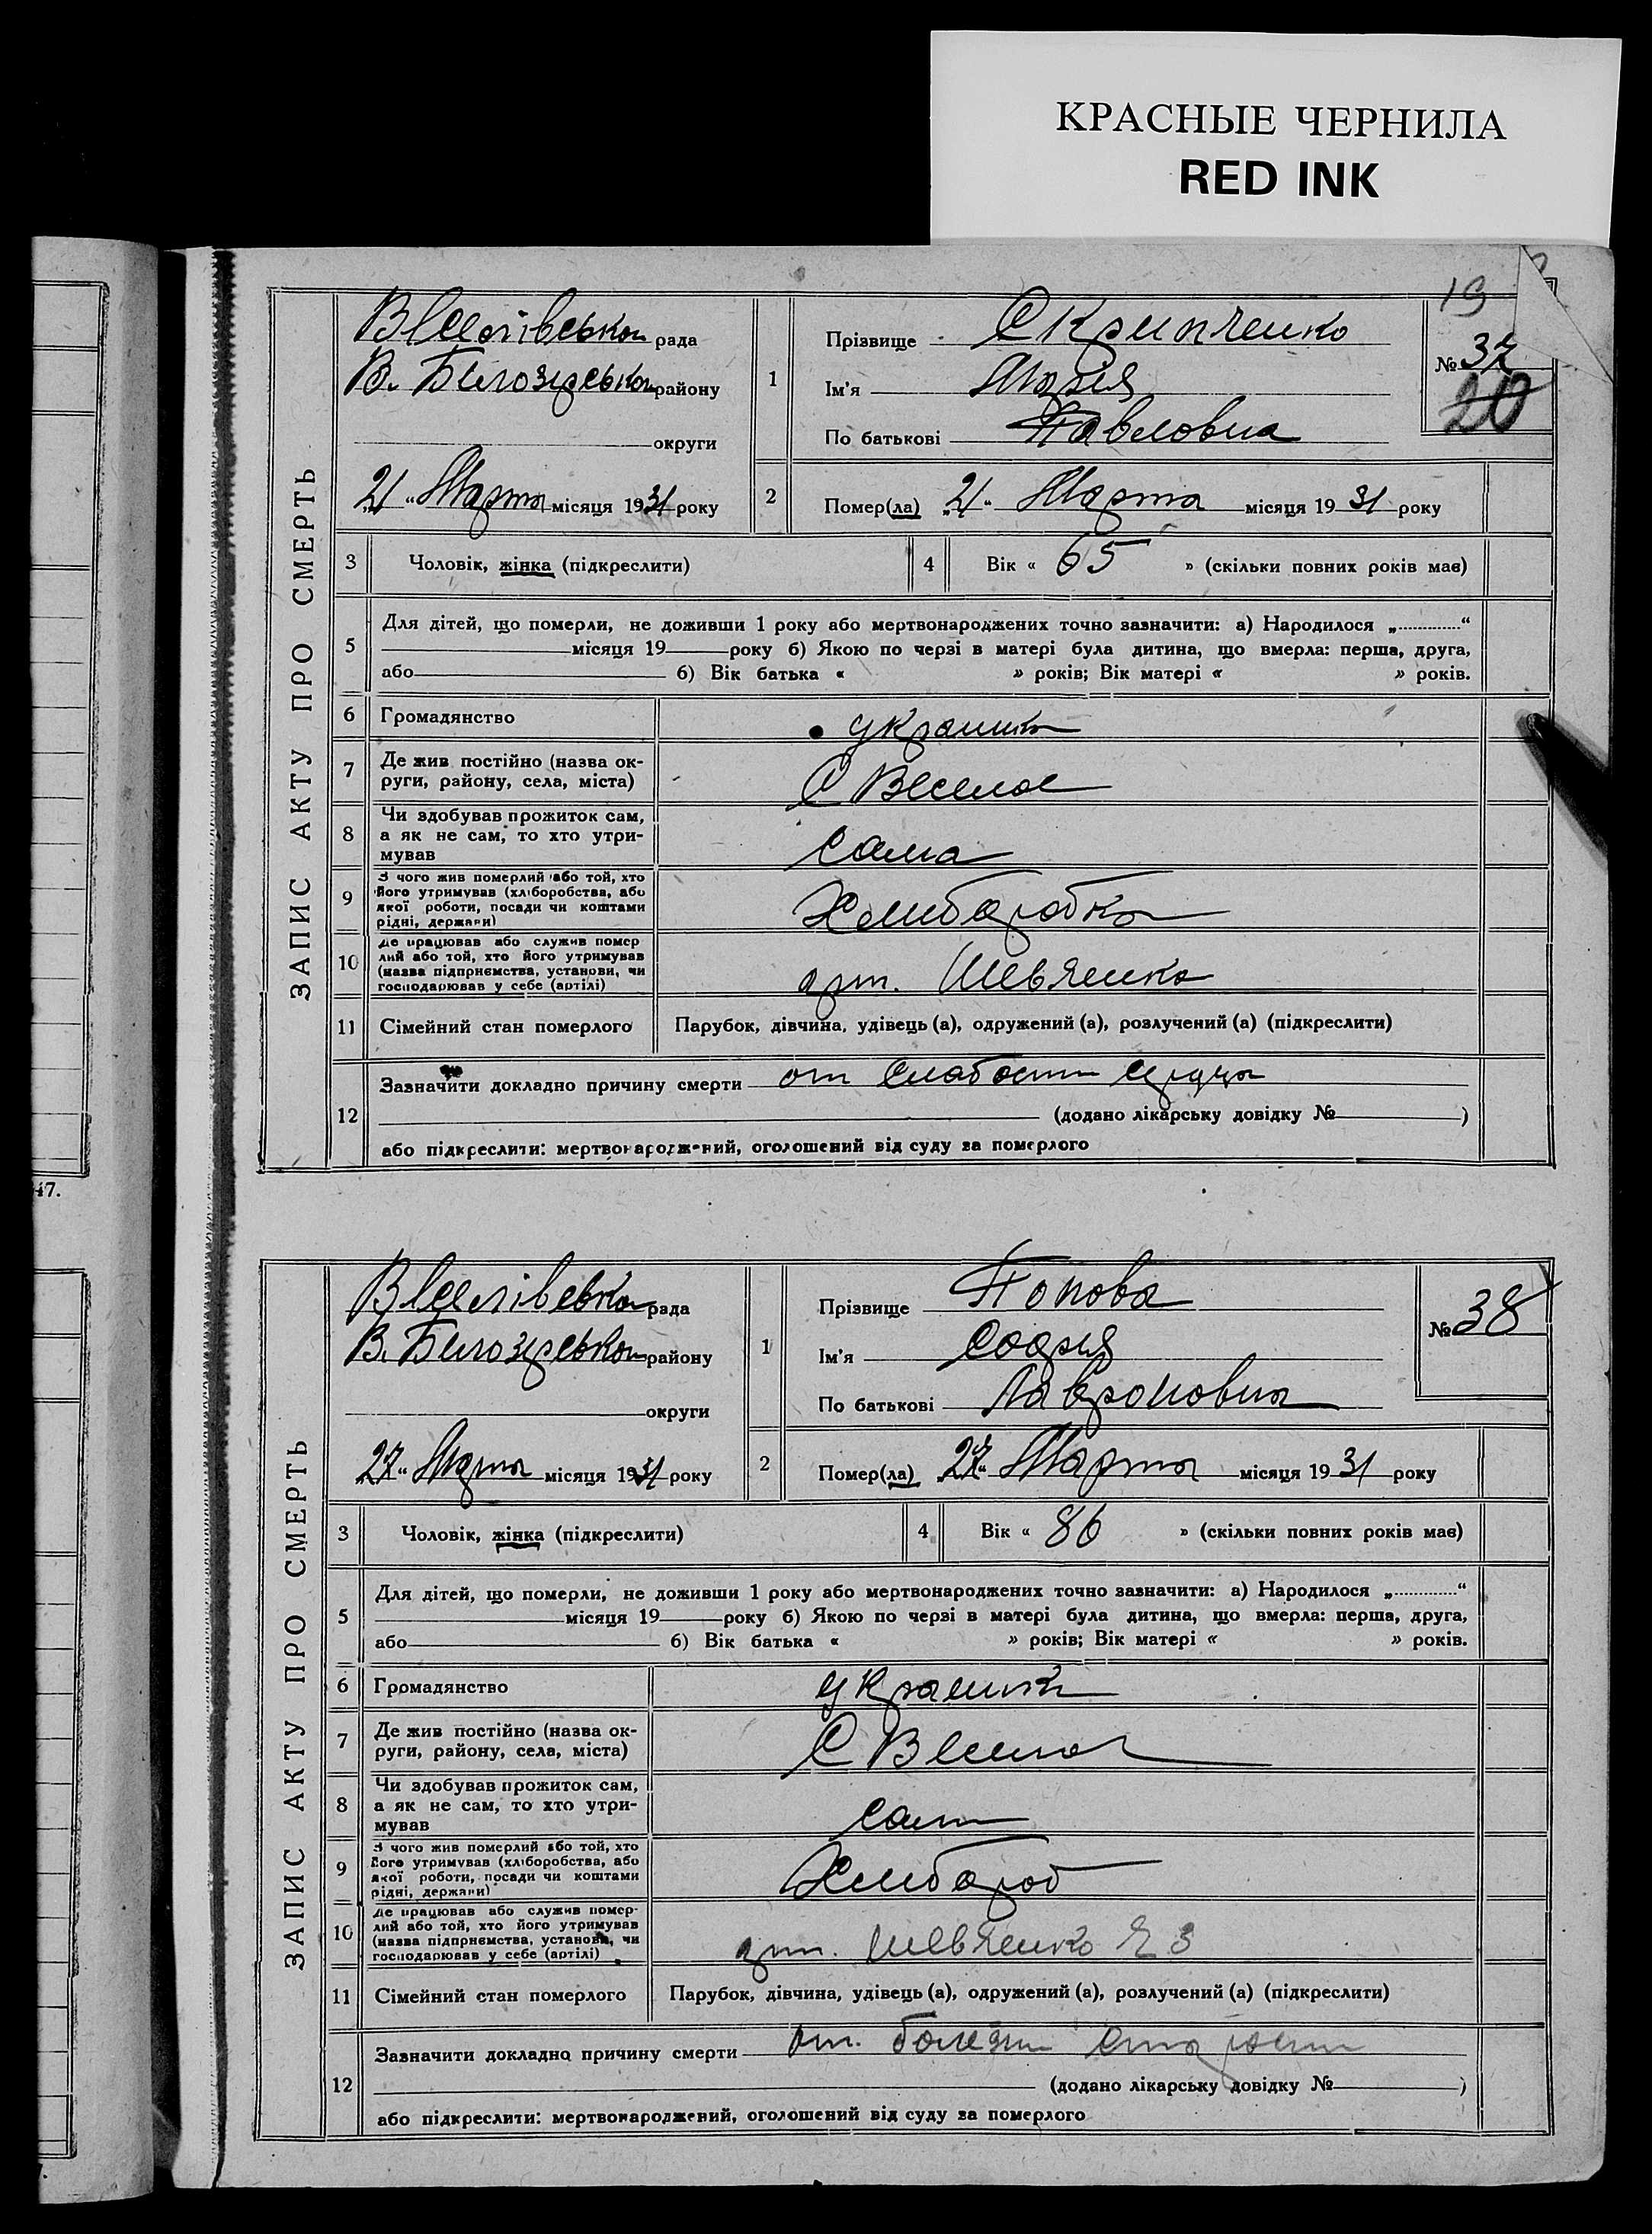 КРАСНЫЕ ЧЕРНИЛА
RED INK
19
ЗАПИС АКТУ ПРО СМЕРТЬ
Веселівська рада
В. Білозерського району
округи
„21“ Марта місяця 1931 року
1
Прізвище Скрипченко
Ім'я Мария
По батькові Павловна
№ 37
20
2
Помер(ла) „21“ Марта місяця 1931 року
3
Чоловік, жінка (підкреслити)
4
Вік « 65 » (скільки повних років має)
5
Для дітей, що померли, не доживши 1 року або мертвонароджених точно зазначити: а) Народилося „............“
місяця 19 року б) Якою по черзі в матері була дитина, що вмерла: перша, друга,
або б) Вік батька « » років; Вік матері « » років.
6
Громадянство
украинка
7
Де жив постійно (назва ок-
руги, району, села, міста)
С Веселое
8
Чи здобував прожиток сам,
а як не сам, то хто утри-
мував
Сама
9
З чого жив померлий або той, хто
його утримував (хліборобства, або
якої роботи, посади чи коштами
рідні, держави)
Хлиборобка
10
Де працював або служив помер
лий або той, хто його утримував
(назва підприємства, установи, чи
господарював у себе (артілі)
арт. Шевченко
11
Сімейний стан померлого
Парубок, дівчина, удівець (а), одружений (а), розлучений (а) (підкреслити)
12
Зазначити докладно причину смерти от слабости сердца
(додано лікарську довідку № )
або підкреслити: мертвонароджений, оголошений від суду за померлого
47.
ЗАПИС АКТУ ПРО СМЕРТЬ
Веселівська рада
В. Білозерського району
округи
„27“ Марта місяця 1931 року
1
Прізвище Попова
Ім'я София
По батькові
№ 38
2
Помер(ла) „27“ Марта місяця 1931 року
3
Чоловік, жінка (підкреслити)
4
Вік « 86 » (скільки повних років має)
5
Для дітей, що померли, не доживши 1 року або мертвонароджених точно зазначити: а) Народилося „............“
місяця 19 року б) Якою по черзі в матері була дитина, що вмерла: перша, друга,
або б) Вік батька « » років; Вік матері « » років.
6
Громадянство
украинка
7
Де жив постійно (назва ок-
руги, району, села, міста)
С Веселое
8
Чи здобував прожиток сам,
а як не сам, то хто утри-
мував
сам
9
З чого жив померлий або той, хто
його утримував (хліборобства, або
якої роботи, посади чи коштами
рідні, держави)
Хлибороб
10
Де працював або служив помер-
лий або той, хто його утримував
(назва підприємства, установи, чи
господарював у себе (артілі)
арт. Шевченко
11
Сімейний стан померлого
Парубок, дівчина, удівець (а), одружений (а), розлучений (а) (підкреслити)
12
Зазначити докладно причину смерти от. болезни старости
(додано лікарську довідку № )
або підкреслити: мертвонароджений, оголошений від суду за померлого